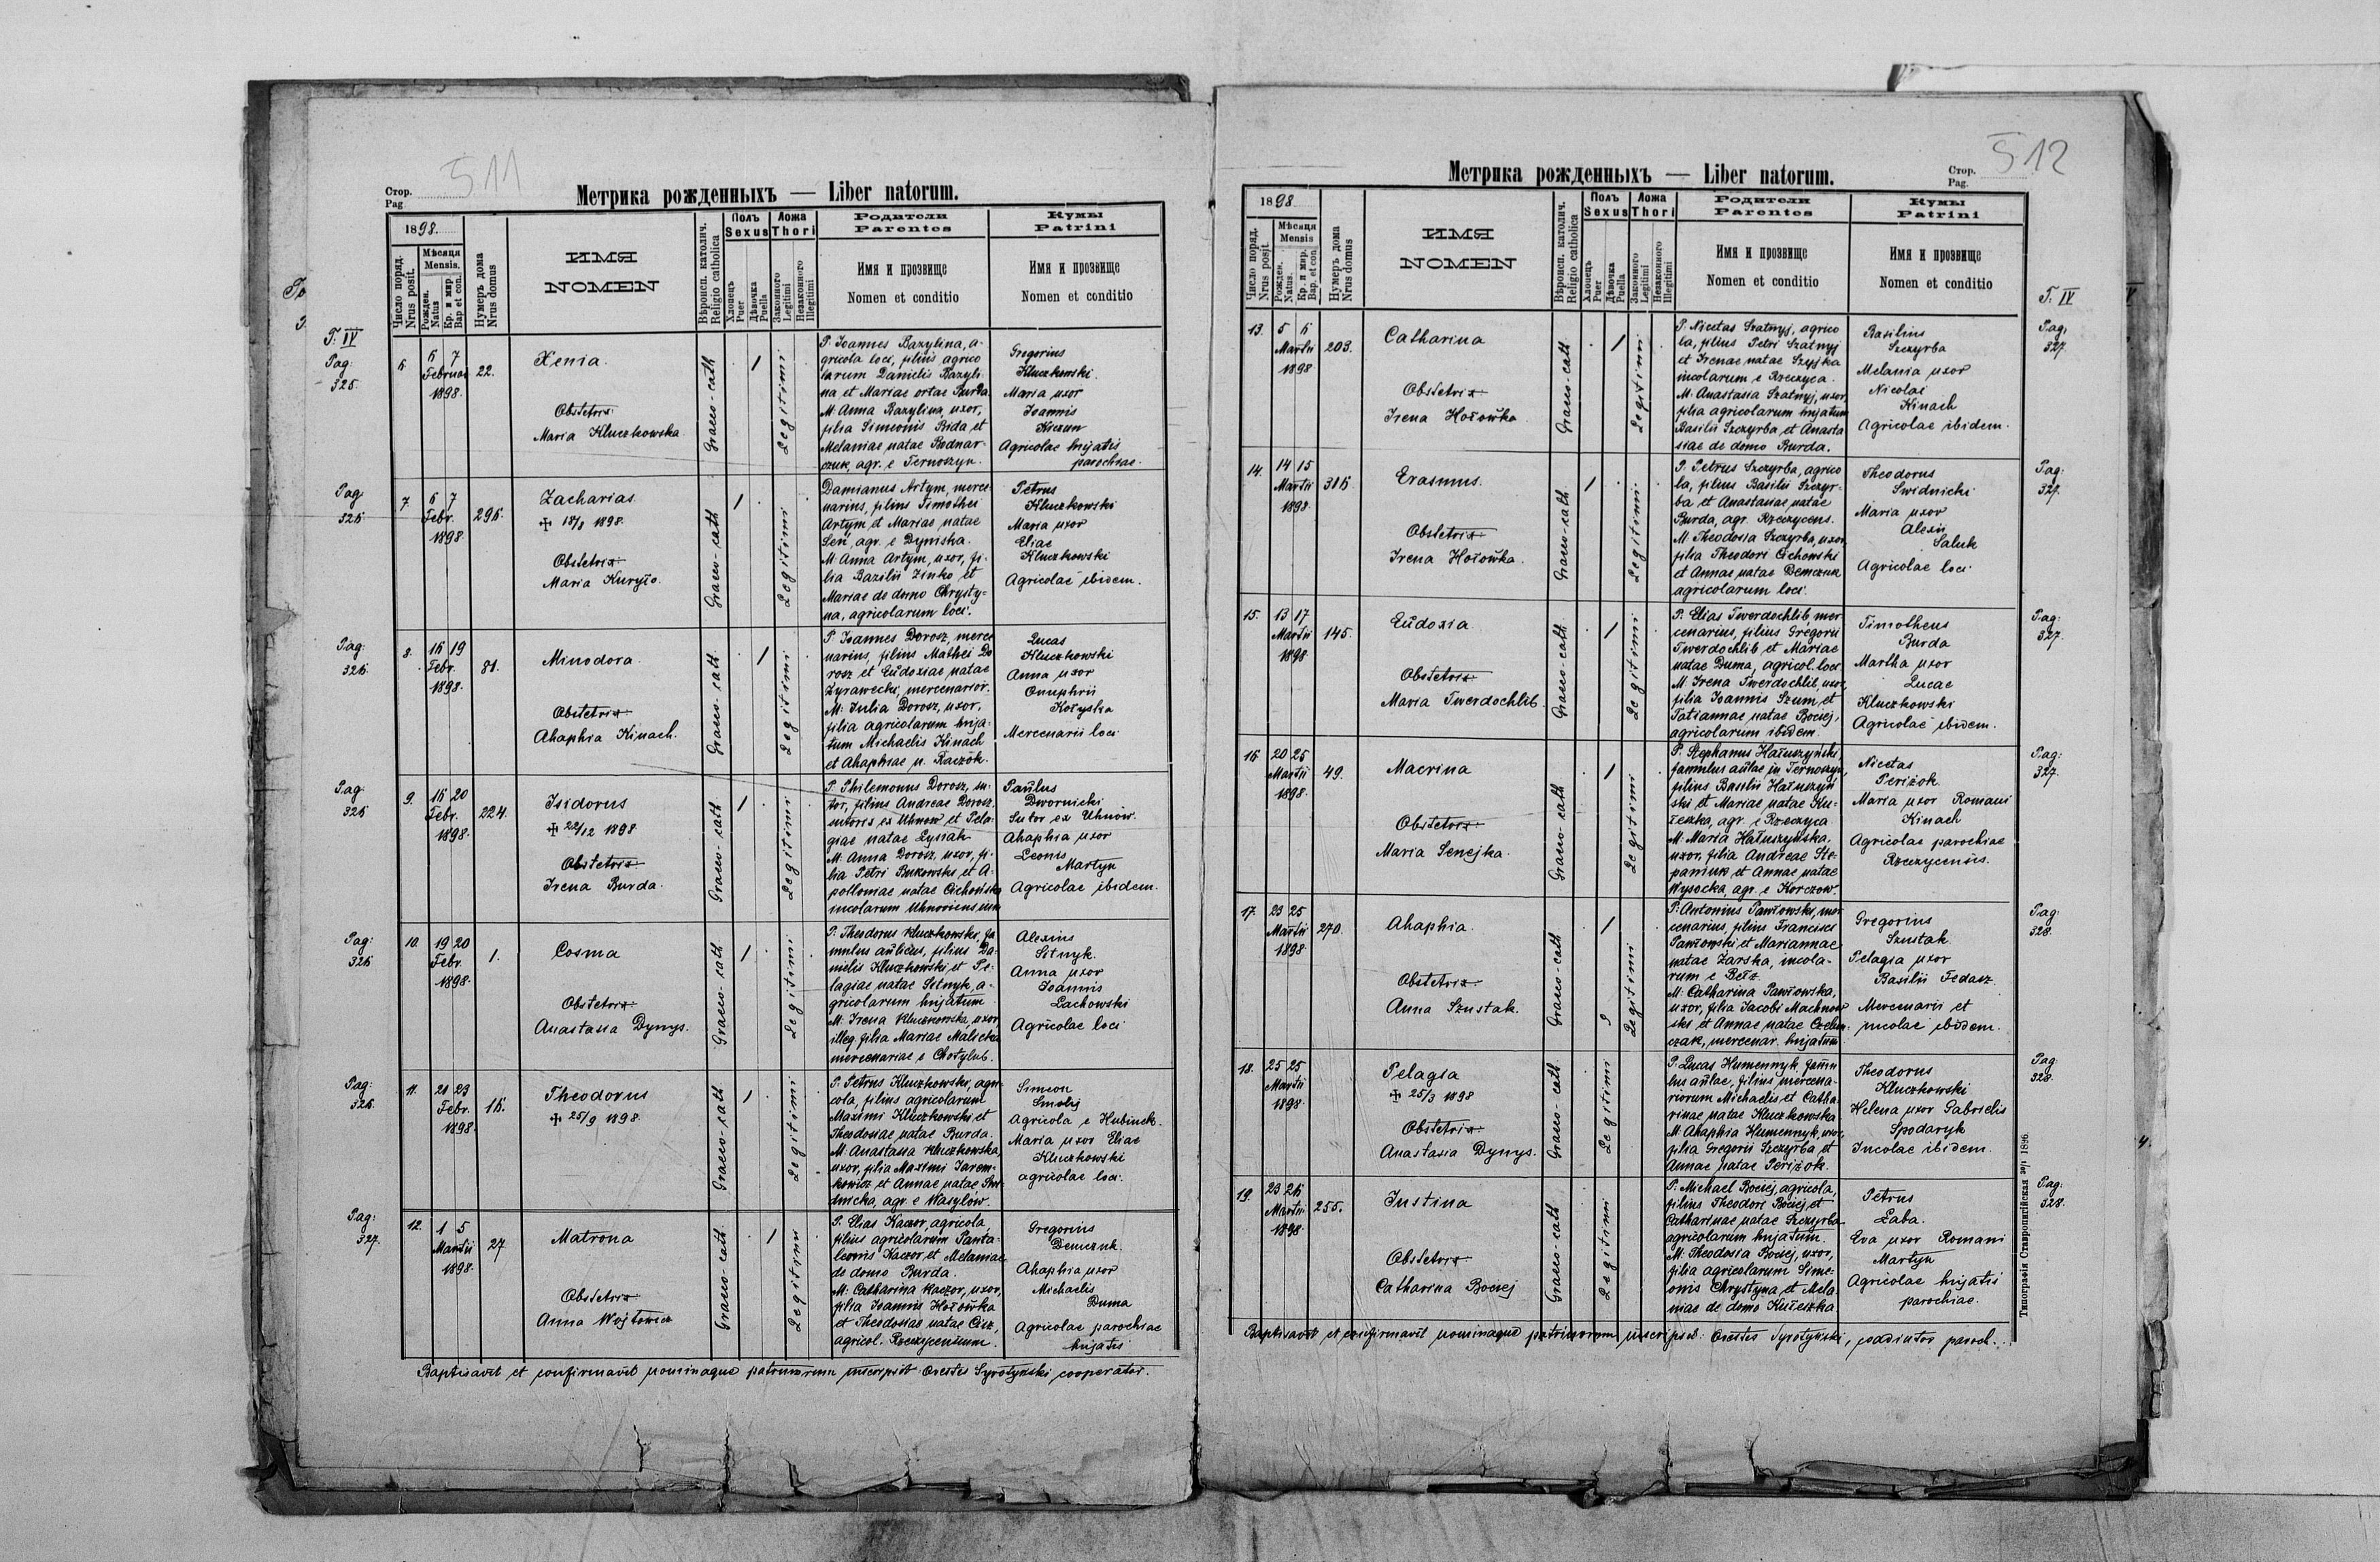 511
Стор.
Pag
Метрика рожденныхъ — Liber natorum.
1898.
Число поряд.
Nrus posit.
Мѣсяця
Mensis.
Рожден.
Natus
Кр. и мир.
Bap et con.
Нумеръ дома
Nrus domus
ИМЯ
NOMEN
Вѣроисп. католич.
Religio catholica
Полъ
Sexus
Хлопець
Puer
Дѣвочка
Puella
Ложа
Thori
Законного
Legitimi
Незаконного
Illegitimi
Родители
Parentes
Имя и прозвище
Nomen et conditio
Кумы
Patrini
Имя и прозвище
Nomen et conditio
T. IV
Pag:
325.
6. 6 7
Februar
1898.
22.
Xenia.
Obstetrix
Maria Kluczkowska
Graeco-cath
1
Legitimi
P. Joannes Bazylina, a-
gricola loci, filius agrico
larum Danielis Bazyli-
na et Mariae ortae Burda.
M. Anna Bazylina, uxor,
filia Simeonis Bida et
Melaniae natae Bodnar-
czuk, agr. e Ternoszyn.
Gregorius
Kluczkowski.
Maria uxor
Joannis
Kiczun
Agricolae hujatis
parochiae.
Pag:
326.
7. 6 7
Febr.
1898
296.
Zacharias.
1898.
Obstetrix
Maria Kuryło.
Graeco-cath
1
Legitimi
Damianus Artym, merce-
narius, filius Timothei
Artym et Mariae natae
Seń, agr. e Dyniska.
M. Anna Artym, uxor, fi-
lia Bazilii Zinko et
Mariae de domo Chrysty-
na, agricolarum loci.
Petrus
Kluczkowski
Maria uxor
Eliae
Kluczkowski
Agricolae ibidem.
Pag:
326.
8. 16 19
Febr.
1898.
81.
Minodora.
Obstetrix
Ahaphia Kinach.
Graeco-cath.
1
Legitimi
P. Joannes Dorosz, merce
narius, filius Mathei Do
rosz et Eudoxiae natae
Zyrawecki, mercenarior.
M: Julia Dorosz, uxor,
filia agricolarum huja-
tum Michaelis Kinach
et Ahaphiae n. Kaczok.
Lucas
Kluczkowski
Anna uxor
Onuphrii
Mercenarii loci
Pag:
326
9. 16 20
Febr.
1898.
224.
Isidorus
22/12 1898
Obstetrix
Irena Burda.
Graeco-cath
1
Legitimi
P. Philemonus Dorosz, su-
tor, filius Andreae Dorosz,
sutoris ex Uhnow et Pela-
giae natae Lysiak
M: Anna Dorosz, uxor, fi-
lia Petri Bukowski et A-
polloniae natae Cichońska
incolarum Uhnoviensium
Paulus
Dwornicki
Sutor ex Uhnow.
Ahaphia uxor
Leonis
Martyn
Agricolae ibidem.
Pag:
326
10. 19 20
Febr.
1898.
1.
Cosma
Obstetrix
Anastasia Dynys.
Graeco-cath
1
Legitimi
P. Theodorus Kluczkowski, fa
mulus aulicus, filius Da-
nielis Kluczkowski et Pe-
lagiae natae Sitnyk, a-
gricolarum hujatum
M: Irena Kluczkowska, uxor,
illeg. filia Mariae Malicka
mercenariae e Chotylub.
Alexius
Sitnyk.
Anna uxor
Joannis
Lachowski
Agricolae loci
Pag:
326.
11. 21 23
Febr.
1898.
16.
Theodorus
25/9 1898.
Graeco-cath
1
Legitimi
P. Petrus Kluczkowski, agri-
cola, filius agricolarum
Maximi Kluczkowski et
Theodosiae natae Burda.
M: Anastasia Kluczkowska,
uxor, filia Maximi Jarem-
kowicz et Annae natae Swi-
dnicka, agr. e Wasylów.
Simeon
Smolij
Agricola e Hubinek.
Maria uxor Eliae
Kluczkowski
agricolae loci.
Pag:
327.
12. 1 5
Martii
1898.
27
Matrona
Obstetrix
Anna Wojtowicz
Graeco-cath
1
Legitimi
P. Elias Kaczor, agricola
filius agricolarum Panta-
leonis Kaczor, et Melaniae
de domo Burda.
M: Catharina Kaczor, uxor,
filia Joannis Hołowka
et Theodosiae natae Cisz,
agricol. Rzeczycensium.
Gregorius
Demczuk.
Ahaphia uxor
Michaelis
Duma
Agricolae parochiae
hujatis
Baptisavit et confirmavit nominaque patrinorum inscripsit Orestes Syrotyński cooperator.
512
Стор.
Pag.
Метрика рожденныхъ — Liber natorum.
1898
Число поряд.
Nrus posit.
Мѣсяця
Mensis
Рожден.
Natus.
Кр. и мир.
Bap. et con.
Нумеръ дома
Nrus domus
ИМЯ
NOMEN
Вѣроисп. католич.
Religio catholica
Полъ
Sexus
Хлопець
Puer
Дѣвочка
Puella
Ложа
Thori
Законного
Legitimi
Незаконного
Illegitimi
Родители
Parentes
Имя и прозвище
Nomen et conditio
Кумы
Patrini
Имя и прозвище
Nomen et conditio
13. 5 6
Martii
1898
203.
Catharina
Obstetrix
Irena Hołowka
Graeco-cath
1
Legitimi
P. Nicetas Szatnyj, agrico
la, filius Petri Szatnyj
et Irenae natae Szyjka
incolarum e Rzeczyca.
M. Anastasia Szatnyj, uxor,
filia agricolarum hujatum
Basilii Szczyrba et Anasta
siae de domo Burda.
Basilius
Szczyrba
Melania uxor
Nicolai
Kinach
Agricolae ibidem.
T. IV
Pag:
327.
14. 14 15
Martii
1898
316.
Erasmus.
Obstetrix
Irena Hołowka.
Graeco-cath
1
Legitimi
P. Petrus Szczyrba, agrico
la, filius Basilii Szczyr-
ba et Anastasiae natae
Burda, agr. Rzeczycens.
M Theodosia Szczyrba, uxor,
filia Theodori Cichowski
et Annae natae Demczuk
agricolarum loci.
Theodorus
Swidnicki
Maria uxor
Alexii
Saluk
Agricolae loci
Pag:
327.
15. 13 17
Martii
1898
145.
Eudoxia
Obstetrix
Maria Twerdochlib.
Graeco-cath
1
Legitimi
P. Elias Twerdochlib, mer
cenarius, filius Gregorii
Twerdochlib et Mariae
natae Duma, agricol. loci
M. Irena Twerdochlib, uxor,
filia Joannis Szum, et
Tatiannae natae Bociej,
agricolarum ibidem.
Timotheus
Burda
Martha uxor
Lucae
Kluczkowski
Agricolae ibidem.
Pag:
327.
16 20 25
Martii
1898.
49.
Macrina
Obstetrix
Maria Senejka.
Graeco-cath
1
Legitimi
P. Stephanus Hałuszyński,
famulus aulae in Ternoszyn,
filius Basilii Hałuszyń
ski et Mariae natae Ku-
łeszka, agr. e Rzeczyca
M. Maria Hałuszyńska.
uxor, filia Andreae Ste-
paniuk et Annae natae
Wysocka, agr. e Korczow.
Nicetas
Periżok
Maria uxor Romani
Kinach
Agricolae parochiae
Rzeczycensis.
Pag:
327.
17. 23 25
Martii
1898
270.
Ahaphia.
Obstetrix
Anna Szustak.
Graeco-cath
1
Legitimi
P: Antonius Pawłowski, mer
cenarius, filius Francisci
Pawłowski et Mariannae
natae Zarska, incola-
rum e Bełz
M: Catharina Pawłowska,
uxor, filia Jacobi Machnow
ski et Annae natae
czak, mercenar. hujatum
Gregorius
Szustak
Pelagia uxor
Basilii Fedasz.
Mercenarii et
incolae ibidem.
Pag:
328.
18. 25 25
Martii
1898.
Pelagia
25/3 1898
Obstetrix
Anastasia Dynys.
Graeco-cath
Legitimi
P. Lucas Humennyk, famu
lus aulae, filius mercena-
riorum Michaelis et Catha-
rinae natae Kluczkowska
M. Ahaphia Humennyk, uxor,
filia Gregorii Szczyrba et
Annae natae Periżok.
Theodorus
Kluczkowski
Helena uxor Gabrielis
Spodaryk
Incolae ibidem.
Pag
328.
19. 23 26
Martii
1898.
255.
Justina
Obstetrix
Catharina Bociej
Graeco-cath
Legitimi
P. Michael Bociej, agricola,
filius Theodori Bociej, et
Catharinae natae Szczyrba
agricolarum hujatum.
M. Theodosia Bociej, uxor,
filia agricolarum Sime-
onis Chrystyna, et Mela
niae de domo Kułeszka
Petrus
Łaba.
Eva uxor Romani
Martyn
Agricolae hujatis
parochiae.
Pag:
328.
Baptisavit et confirmavit nominaque patrinorum inscripsit: Orestes Syrotyński, coadiutor paroch.
Типографія Ставропигійская 1896